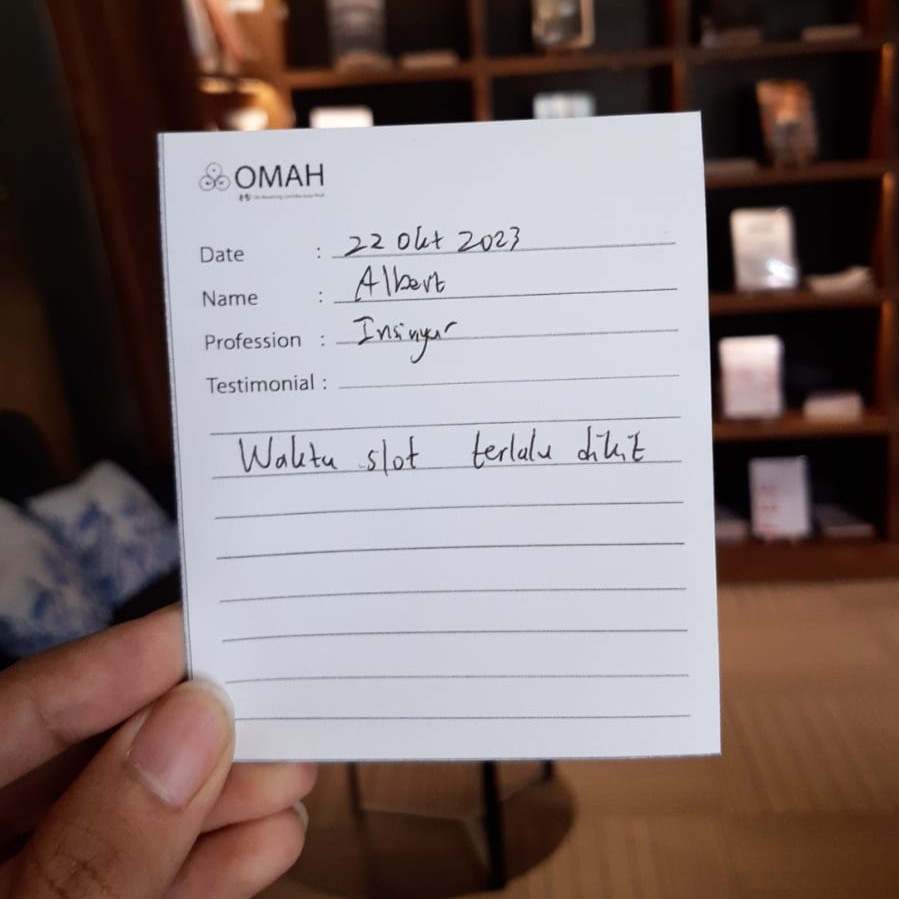 OMAH
Date : 22 Okt 2023
Name : Albert
Profession : Insinyur
Testimonial :
Waktu slot terlalu dikit